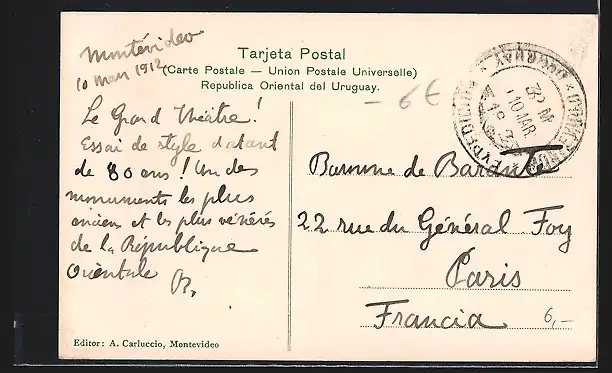 Montévideo
10 Mars 1912
Tarjeta Postal
(Carte Postale — Union Postale Universelle)
Republica Oriental del Uruguay.
— 6€
Le Grand Théâtre !
Essai de style datant
de 80 ans ! Un des
monuments les plus
anciens et les plus vénérés
de la République
Orientale
10 MAR.
Baronne de Barante
22 rue du Général Foy
Paris
Francia
6,–
Editor: A. Carluccio, Montevideo